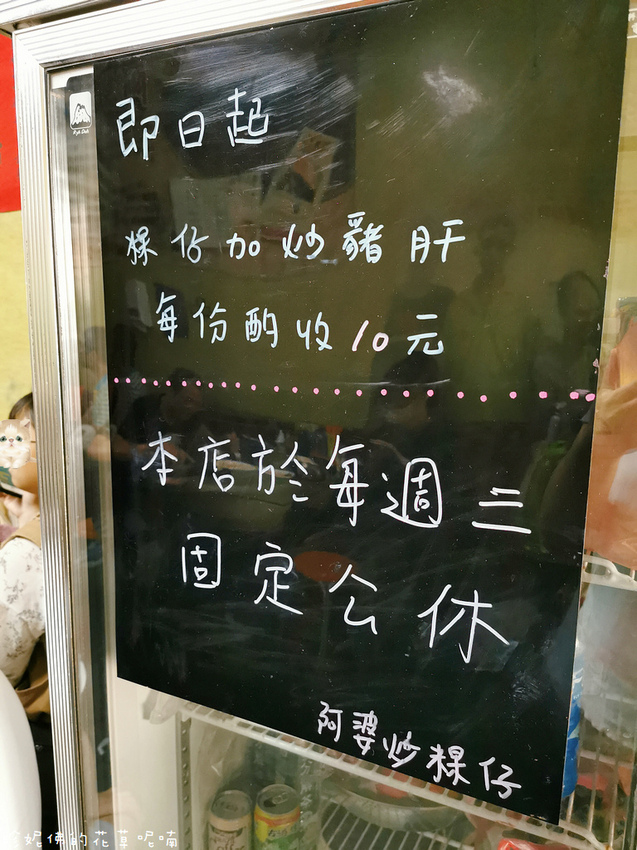 即日起
粿仔加炒豬肝
每份酌收10元
本店於每週三
固定公休
阿婆炒粿仔
妮佛的花草呢喃